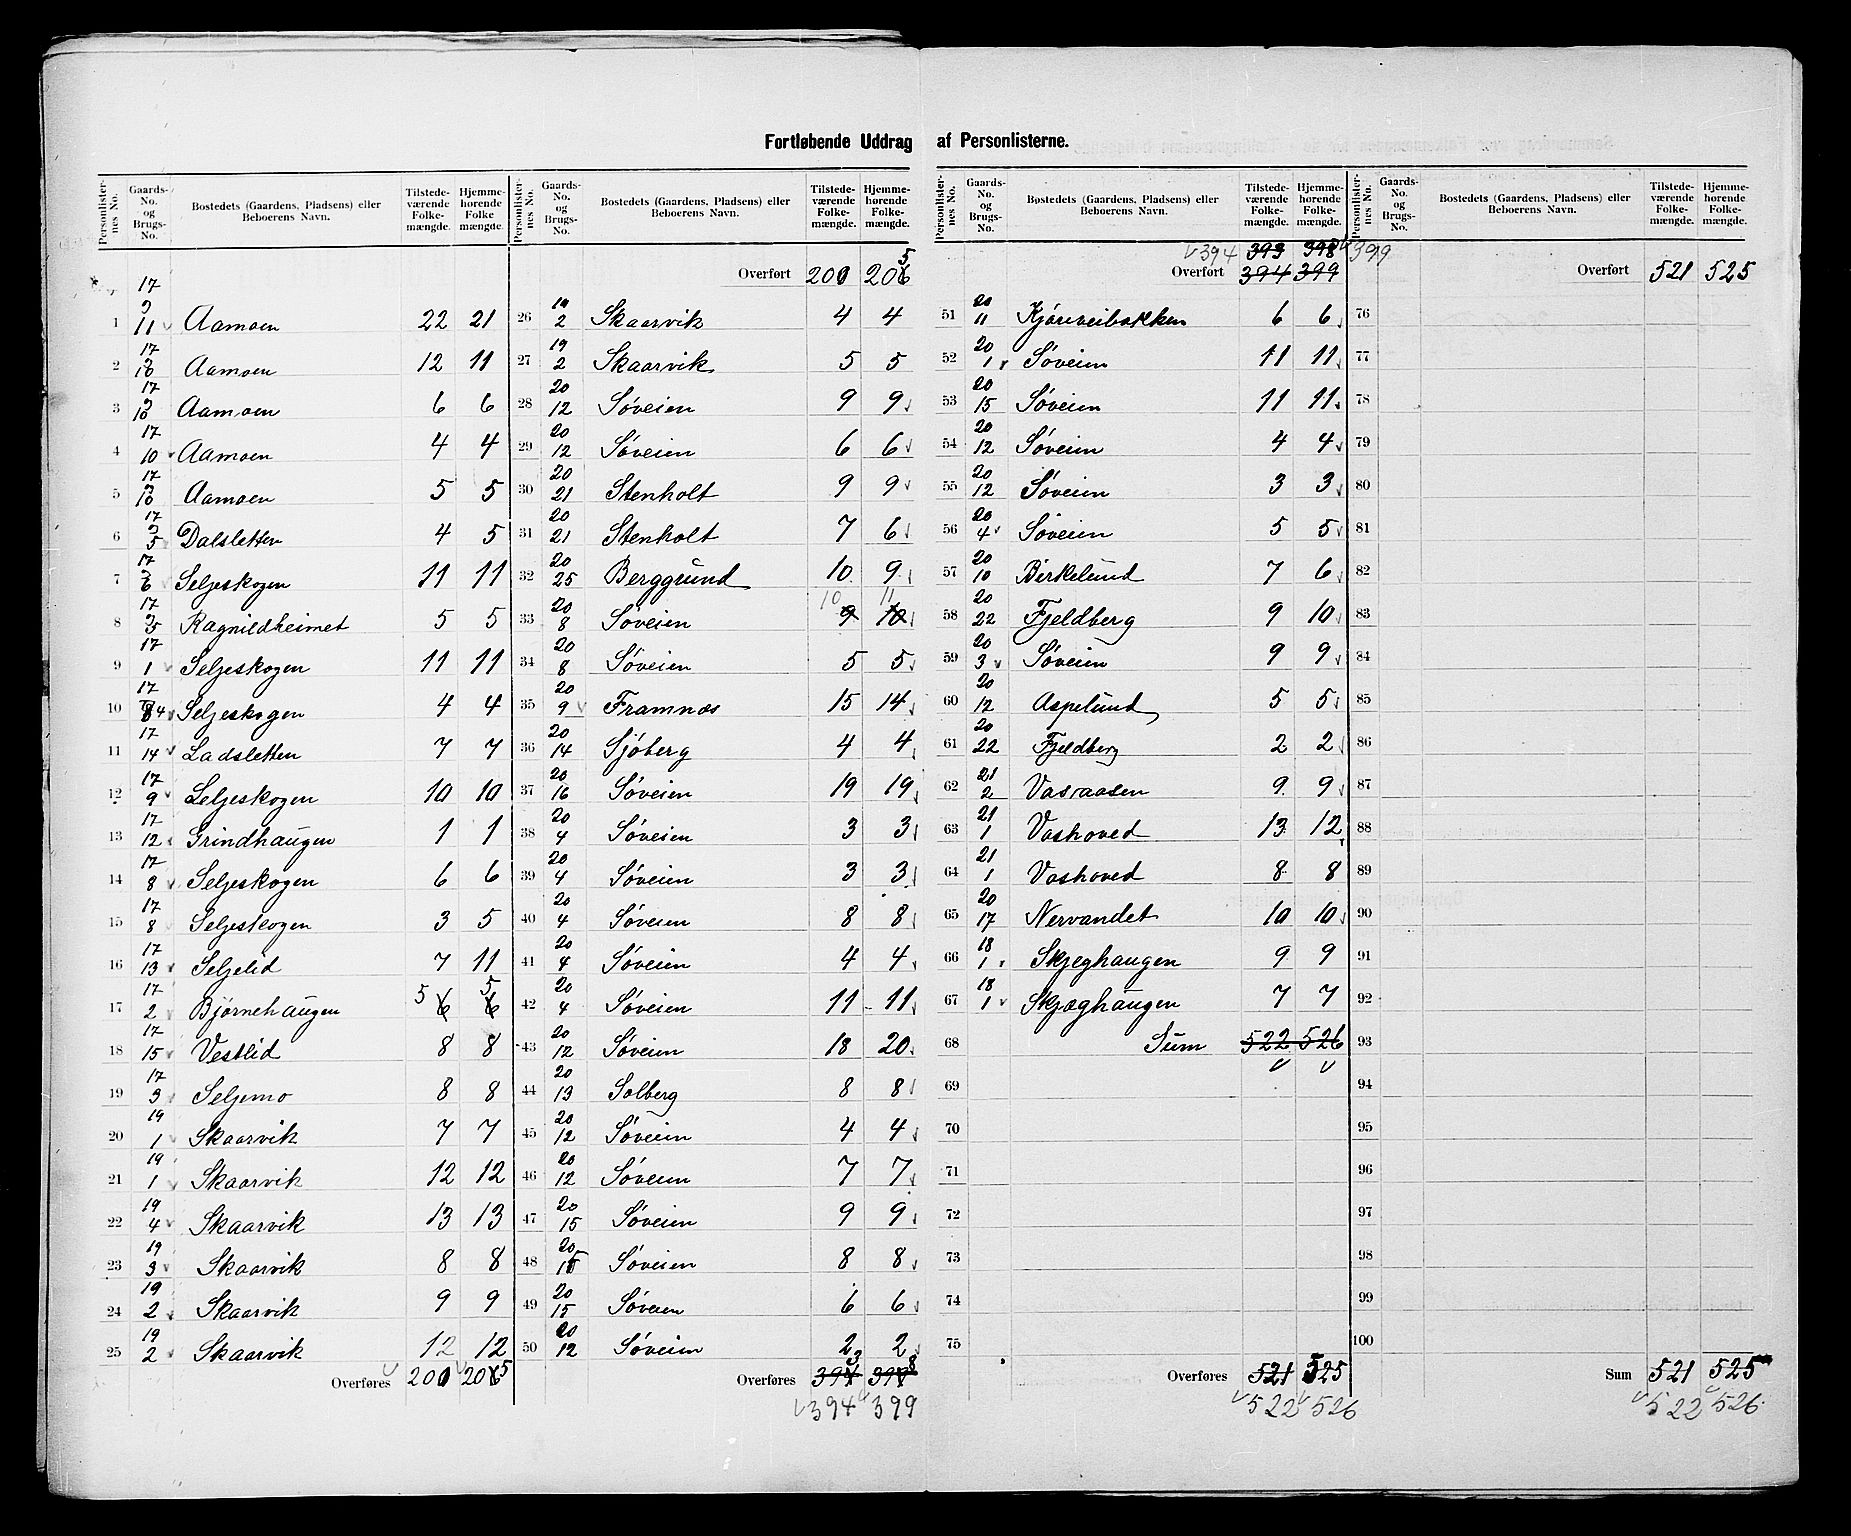 Fortløbende Uddrag af Personlisterne.
Personlister- nes No. Gaards- No. og Brugs- No. Bostedets (Gaardens, Pladsens) eller Beboerens Navn. Tilstede- værende Folke- mængde. Hjemme- hørende Folke mængde.
17
1 11 Aamoen 22 21
17
2 Aamoen 12 11
17
3 Aamoen 6 6
17
4 10 Aamoen 4 4
17
5 Aamoen 5 5
17
6 5 Dalsletten 4 5
17
7 6 Seljeskogen 11 11
17
8 Ragnildheimet 5 5
17
9 1 Seljeskogen 11 11
17
10 4 Seljeskogen 4 4
17
11 14 Ladsletten 7 7
17
12 9 Seljeskogen 10 10
17
13 12 Grindhaugen 1 1
17
14 8 Seljeskogen 6 6
17
15 8 Seljeskogen 3 5
17
16 13 Seljelid 7 11
17 5 5
17 2 Bjørnehaugen 6 6
17
18 15 Vestlid 8 8
17
19 3 Seljemo 8 8
19
20 1 Skaarvik 7 7
19
21 1 Skaarvik 12 12
19
22 4 Skaarvik 13 13
19
23 3 Skaarvik 8 8
19
24 2 Skaarvik 9 9
19
25 2 Skaarvik 12 12
Overføres 200 205
Personlister- nes No. Gaards- No. og Brugs- No. Bostedets (Gaardens, Pladsens) eller Beboerens Navn. Tilstede- værende Folke- mængde. Hjemme- hørende Folke- mængde.
Overført 200 205
19
26 2 Skaarvik 4 4
19
27 2 Skaarvik 5 5
20
28 12 Søveien 9 9
20
29 12 Søveien 6 6
20
30 21 Stenholt 9 9
20
31 21 Stenholt 7 6
20
32 25 Berggrund 10 9
20 10 11
33 8 Søveien 9 10
20
34 8 Søveien 5 5
20
35 9 Framnæs 15 14
20
36 14 Sjøberg 4 4
20
37 16 Søveien 19 19
20
38 4 Søveien 3 3
20
39 4 Søveien 3 3
20
40 4 Søveien 8 8
20
41 4 Søveien 4 4
20
42 4 Søveien 11 11
20
43 12 Søveien 18 20
20
44 13 Solberg 8 8
20
45 12 Søveien 4 4
20
46 12 Søveien 7 7
20
47 15 Søveien 9 9
20
48 15 Søveien 8 8
20
49 15 Søveien 6 6
20
50 12 Søveien 2 2
Overføres 393 398
394 399
Personlister- nes No. Gaards- No. og Brugs- No. Bostedets (Gaardens, Pladsens) eller Beboerens Navn. Tilstede- værende Folke- mængde. Hjemme- hørende Folke- mængde.
394 393 398 399
Overført 394 399
20
51 11 Kjøreveibakken 6 6
20
52 1 Søveien 11 11
20
53 15 Søveien 11 11
20
54 12 Søveien 4 4
20
55 12 Søveien 3 3
20
56 4 Søveien 5 5
20
57 10 Birkelund 7 6
20
58 22 Fjeldberg 9 10
20
59 3 Søveien 9 9
20
60 12 Aspelund 5 5
20
61 22 Fjeldberg 2 2
21
62 2 Vasraasen 9 9
21
63 1 Vashoved 13 12
21
64 1 Vashoved 8 8
20
65 17 Nervandet 10 10
18
66 1 Skjeghaugen 9 9
18
67 1 Skjæghaugen 7 7
68 Sum 522 526
69
70
71
72
73
74
75
Overføres 521 525
522 526
Personlister- nes No. Gaards- No. og Brugs- No. Bostedets (Gaardens, Pladsens) eller Beboerens Navn. Tilstede- værende Folke- mængde. Hjemme- hørende Folke- mængde.
Overført 521 525
76
77
78
79
80
81
82
83
84
85
86
87
88
89
90
91
92
93
94
95
96
97
98
99
100
Sum 521 525
522 526